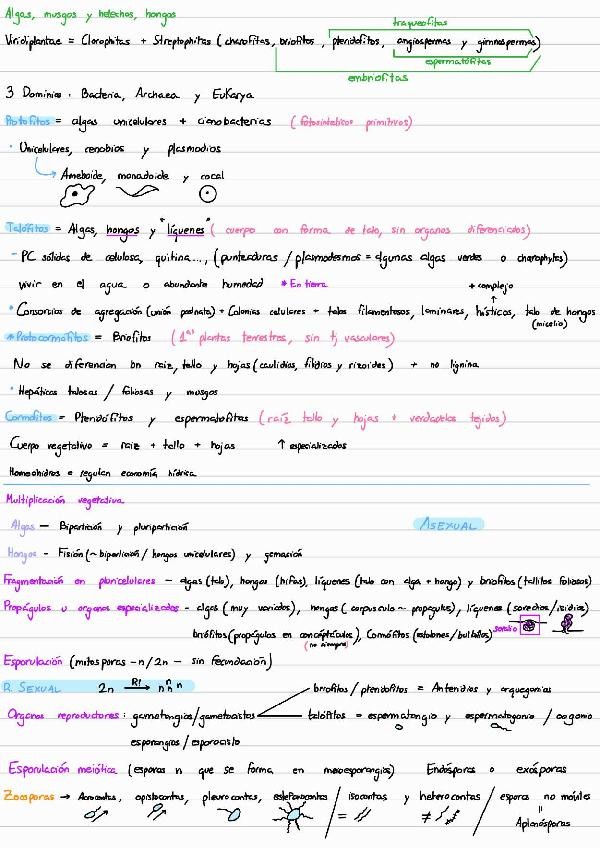 Algas, musgos y helechos, hongos
traqueofitas
Viridiplantae = Clorophitas + Streptophitas ( charofitas, briofitos, pteridofitos, angiospermas y gimnospermas)
espermatófitas
embriofitas
3 Dominios: Bacteria, Archaea y Eukarya
Protofitos = algas unicelulares + cianobacterias (fotosintéticos primitivos)
· Unicelulares, cenobios y plasmodios
Ameboide, monadoide y cocal
Talófitos = Algas, hongos y "líquenes" ( cuerpo con forma de talo, sin organos diferenciados)
- PC sólidas de celulosa, quitina..., (punteaduras / plasmodesmos = algunas algas verdes o charophytas)
vivir en el agua o abundante humedad * En tierra + complejo
· Consorcios de agregación (unión pectnata) + Colonias celulares + talos filamentosos, laminares, hísticos, talo de hongos
(micelio)
* Protocormofitos = Briofitos (1ªs plantas terrestres, sin tj vasculares)
No se diferencian bn raiz, tallo y hojas (caulidios, filidios y rizoides) + no lignina
· Hepáticas talosas / foliosas y musgos
Cormofitos = Pteridófitos y espermatofitas (raíz tallo y hojas + verdaderos tejidos)
Cuerpo vegetativo = raiz + tallo + hojas ↑ especializados
Homeohidros = regulan economía hídrica
Multiplicación vegetativa
Algas - Bipartición y pluripartición ASEXUAL
Hongos - Fisión (~ bipartición / hongos unicelulares) y gemación
Fragmentación en pluricelulares - algas (talo), hongos (hifas), líquenes (talo con alga + hongo) y briofitos (tallitos foliosos)
Propágulos u organos especializados - algas ( muy variados), hongos ( corpusculo ~ propagulos), líquenes (soredios/isidios)
briófitos (propágulos en conceptáculos), Cormófitos (estolones / bulbillos) soredio
(no siempre)
Esporulación (mitosporas - n/2n - sin fecundación)
R. SEXUAL 2n R! n n n n
briofitos / pteridofitos = Anteridios y arquegonios
Organos reproductores: gametangios/gametocistos talófitos = espermatangio y espermatogonio / oogonio
esporangios / esporocisto
Esporulación meiótica (esporas n que se forma en meiosporangios) Endósporas o exósporas
Zoosporas → Acrocontas, opistocontas, pleurocontas, estefanocontas / = isocontas y heterocontas / esporas no móviles
≠
=
Aplanósporas